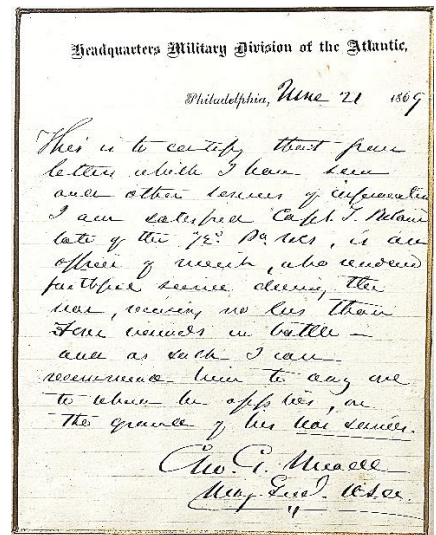 Headquarters Military Division of the Atlantic,
Philadelphia, June 21 1869
This is to certify that from
letters which I have seen
and other sources of information
I am satisfied Capt. J.
late of the 72d Pa. , is an
officer of merit, who rendered
faithful service during the
war, receiving no less than
four wounds in battle –
and as such I can
recommend him to any one
to whom he applies, on
the grounds of his war services.
Geo. G. Meade
Maj. Genl. U.S.A.